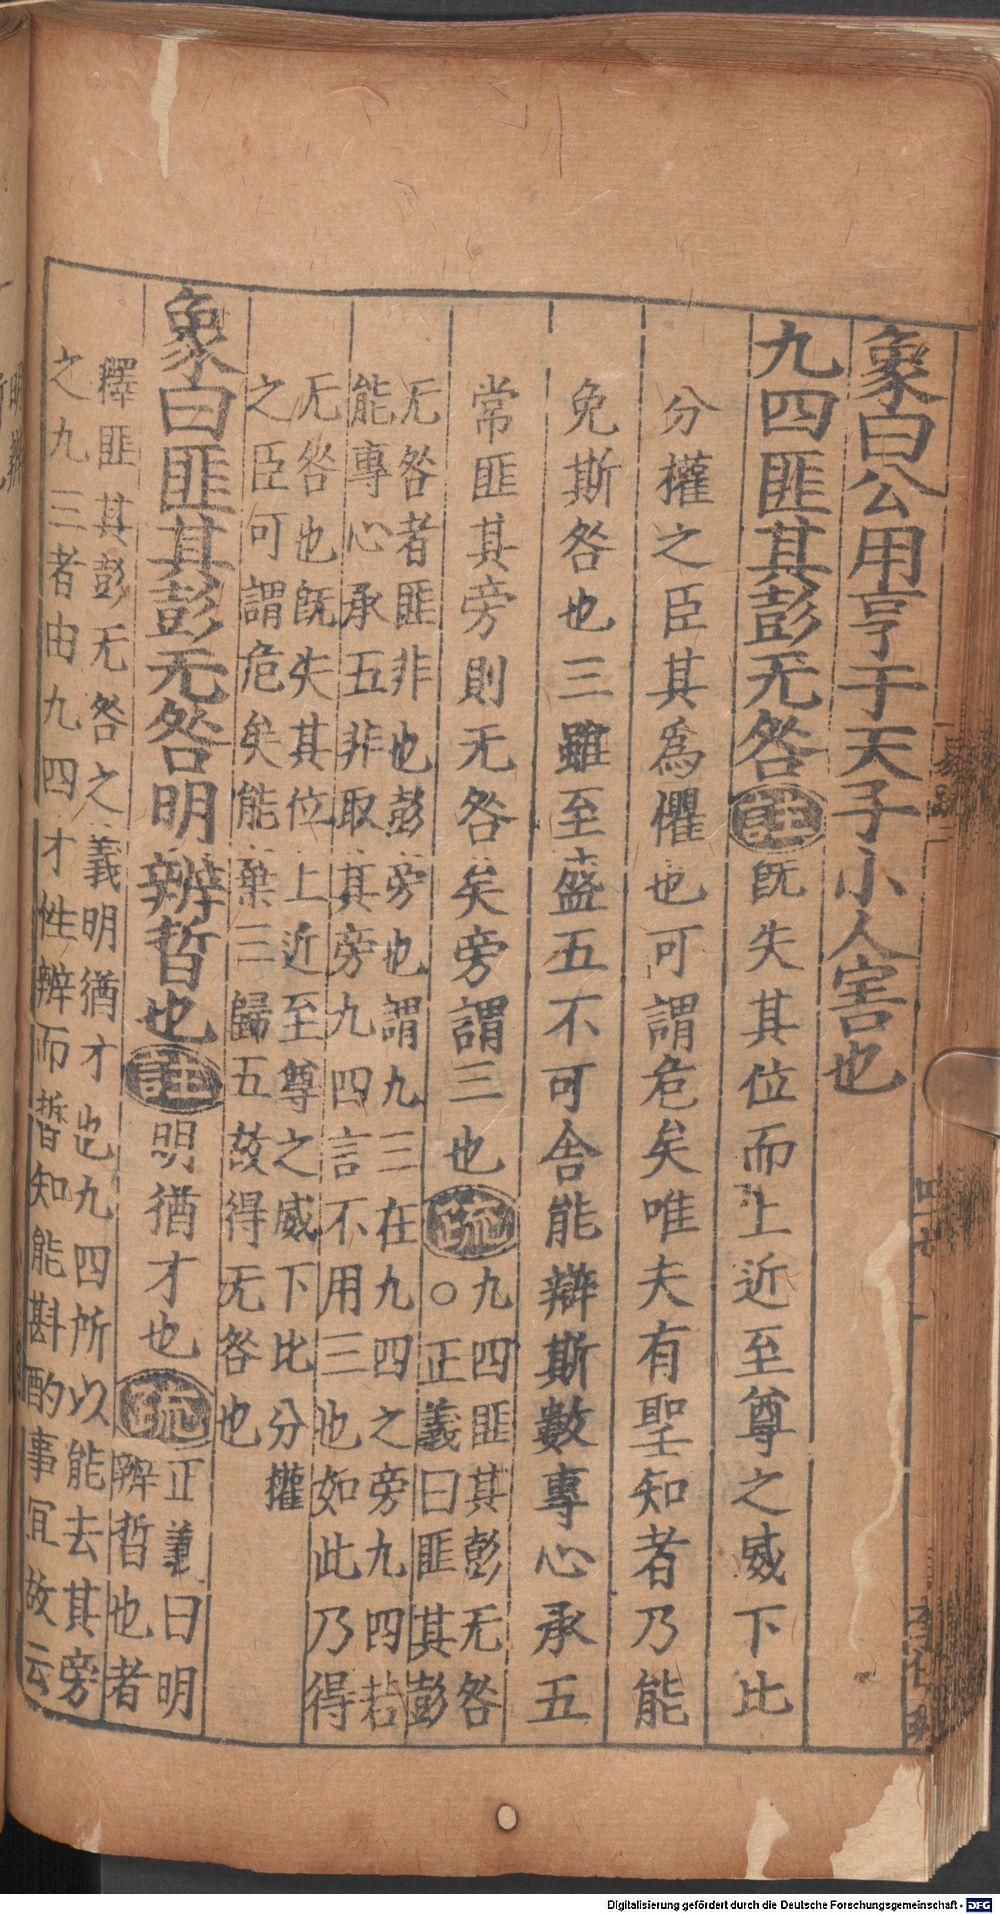 象曰公用亨于天子小人害也
九四匪其彭无咎註旣失其位而上近至尊之威下比
分權之臣其爲懼也可謂危矣唯夫有聖知者乃能
免斯咎也三雖至盛五不可舍能辯斯數專心承五
常匪其旁則无咎矣旁謂三也疏九四匪其彭无咎
○正義曰匪其彭
无咎者匪非也彭旁也謂九三在九四之旁九四若
能專心承五非取其旁九四言不用三也如此乃得
无咎也旣失其位上近至尊之威下比分權
之臣可謂危矣能棄三歸五故得无咎也
象曰匪其彭无咎明辨晢也註明猶才也疏正義曰明
辨晢也者
釋匪其彭无咎之義明猶才也九四所以能去其旁
之九三者由九四才性辨而晢知能斟酌事宜故云
Digitalisierung gefördert durch die Deutsche Forschungsgemeinschaft - DFG